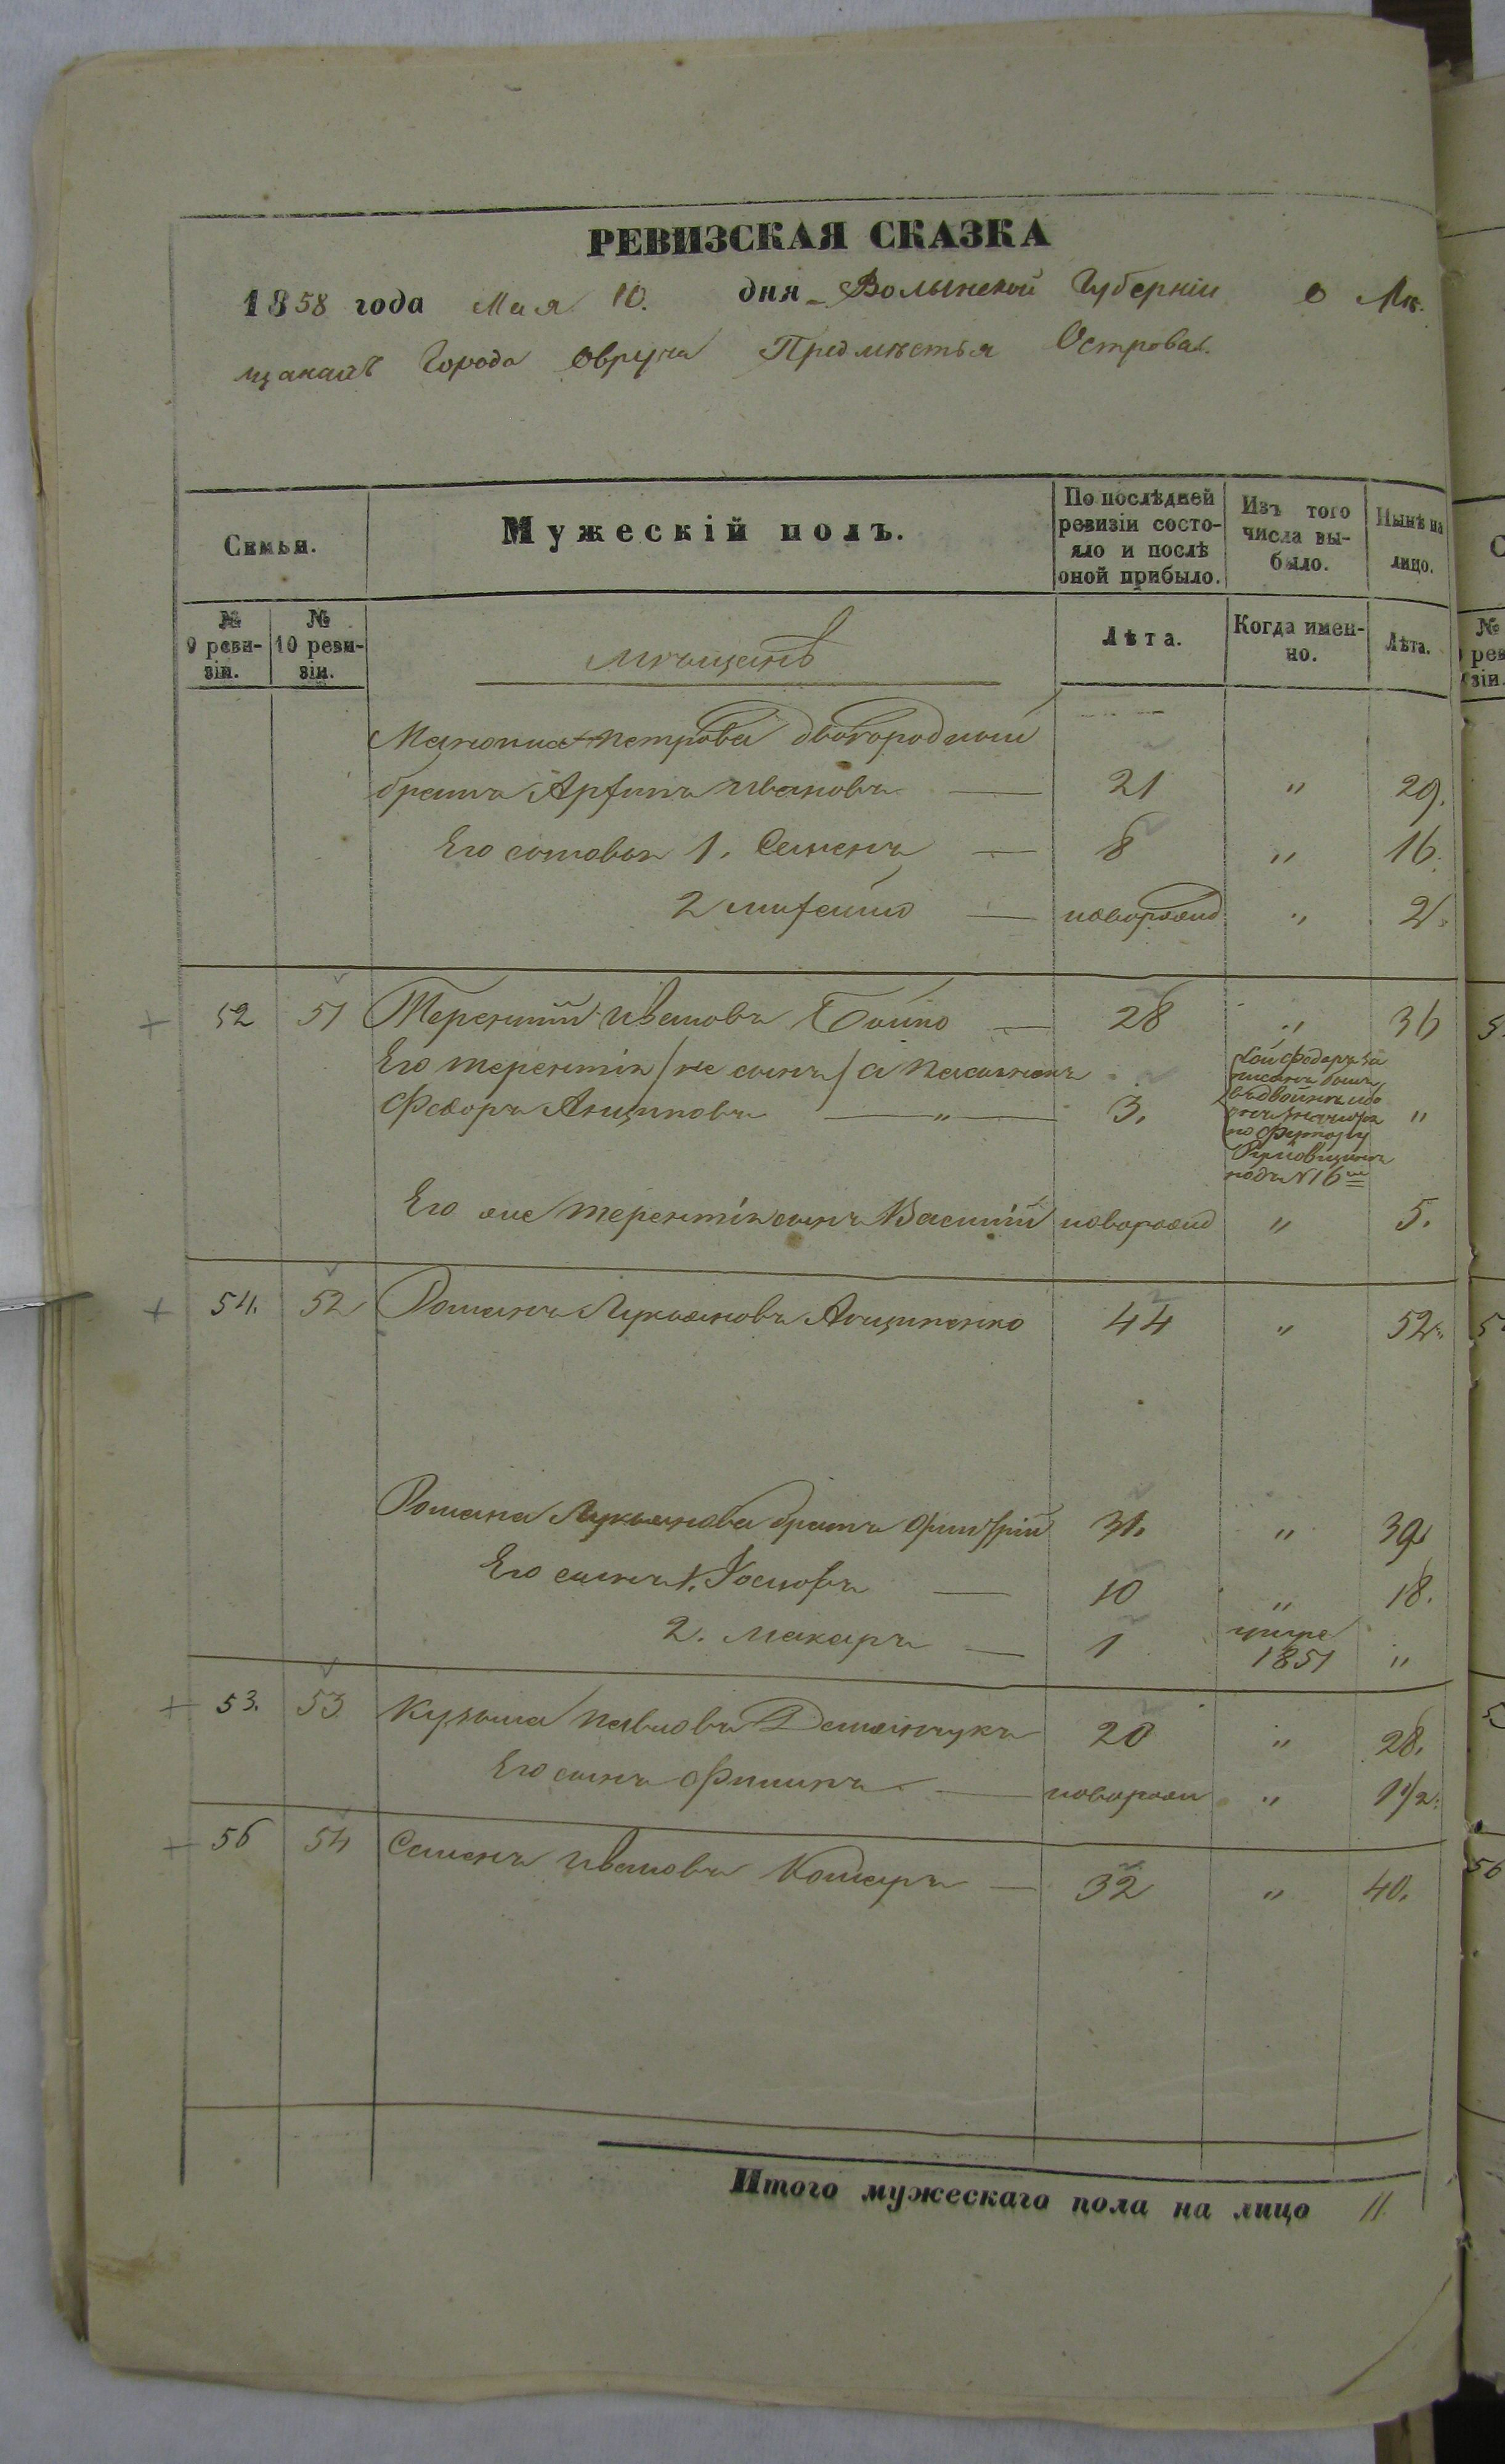 РЕВИЗСКАЯ СКАЗКА
1858 года Мая 10. дня Волынской Губерніи о Мѣ-
щанахъ Города Овруча Предмѣстья Острова.
Семьи.
Мужескій полъ.
По послѣдней ревизіи состо-яло и послѣ оной прибыло.
Изъ того числа вы-было.
Нынѣ на лицо.
№ 9 реви-зіи.
№ 10 реви-зіи.
Мѣщанъ
Лѣта.
Когда имен-но.
Лѣта.
Петрова двоюродный
братъ Ивановъ — 21 " 29.
Его сыновья 1. Семенъ — 8 " 16.
2 — новорожд " 2.
52 51 Терентій Ивановъ Бойко — 28 " 36
Его Терентія /не сынъ/ а пасынокъ
Федоръ Анищиковъ — " — 3. "
Сей Федоръ за
писанъ былъ
под № 16
Его же Терентія сынъ Василій новорожд " 5.
54. 52 Романъ Лукьяновъ Анищенко 44 " 52.
Романа Лукьянова братъ Дмитрій 31. " 39
Его сынъ 1. Іосифъ — 10 " 18.
2. Макаръ — 1 умре 1851 "
53. 53 Кузьма Павловъ Демьянчукъ 20 " 28.
Его сынъ Филипъ — новорож " 1 1/2.
56 54 Семенъ Ивановъ — 32 " 40.
Итого мужескаго пола на лицо 11